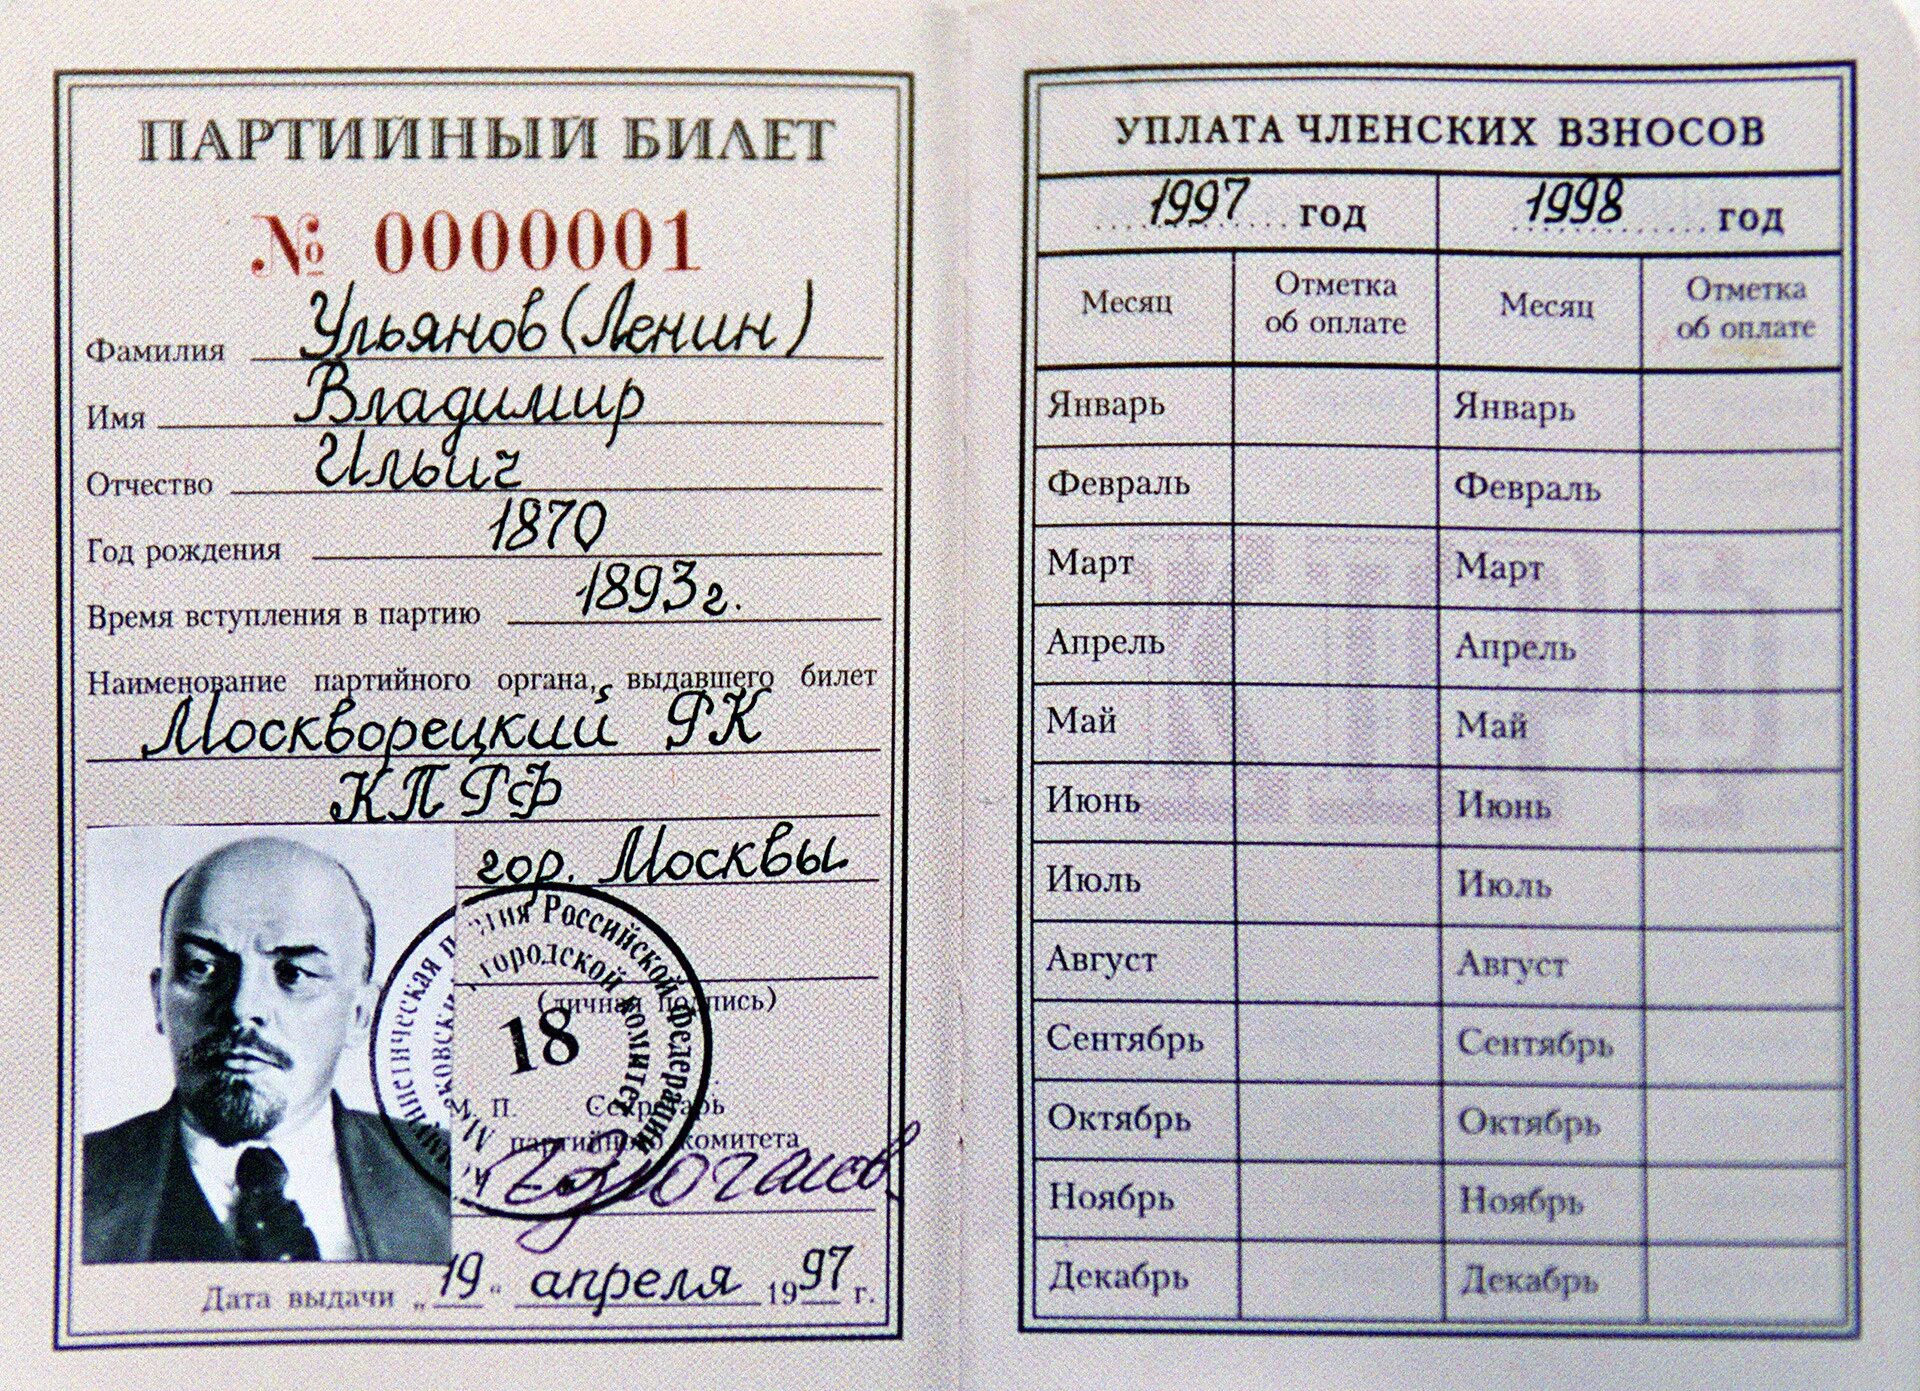 ПАРТИЙНЫЙ БИЛЕТ
№ 0000001
Фамилия Ульянов (Ленин)
Имя Владимир
Отчество Ильич
Год рождения 1870
Время вступления в партию 1893 г.
Наименование партийного органа, выдавшего билет
Москворецкий РК
КПРФ
гор. Москвы
(личная подпись)
18
М. П. Секретарь
партийного комитета
Дата выдачи „19“ апреля 1997 г.
УПЛАТА ЧЛЕНСКИХ ВЗНОСОВ
1997 год 1998 год
Месяц Отметка об оплате Месяц Отметка об оплате
Январь Январь
Февраль Февраль
Март Март
Апрель Апрель
Май Май
Июнь Июнь
Июль Июль
Август Август
Сентябрь Сентябрь
Октябрь Октябрь
Ноябрь Ноябрь
Декабрь Декабрь